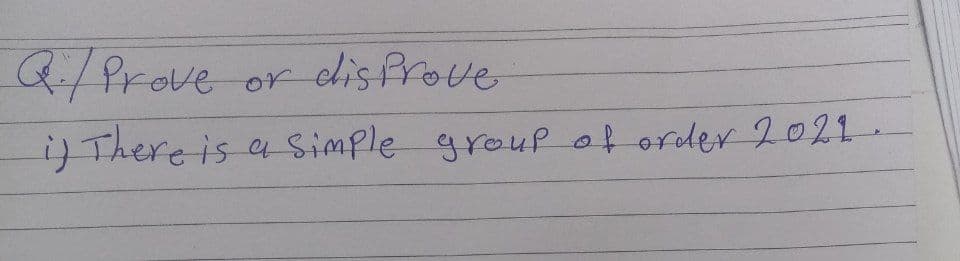 Q:/ Prove or disProve
i) There is a simple group of order 2021.